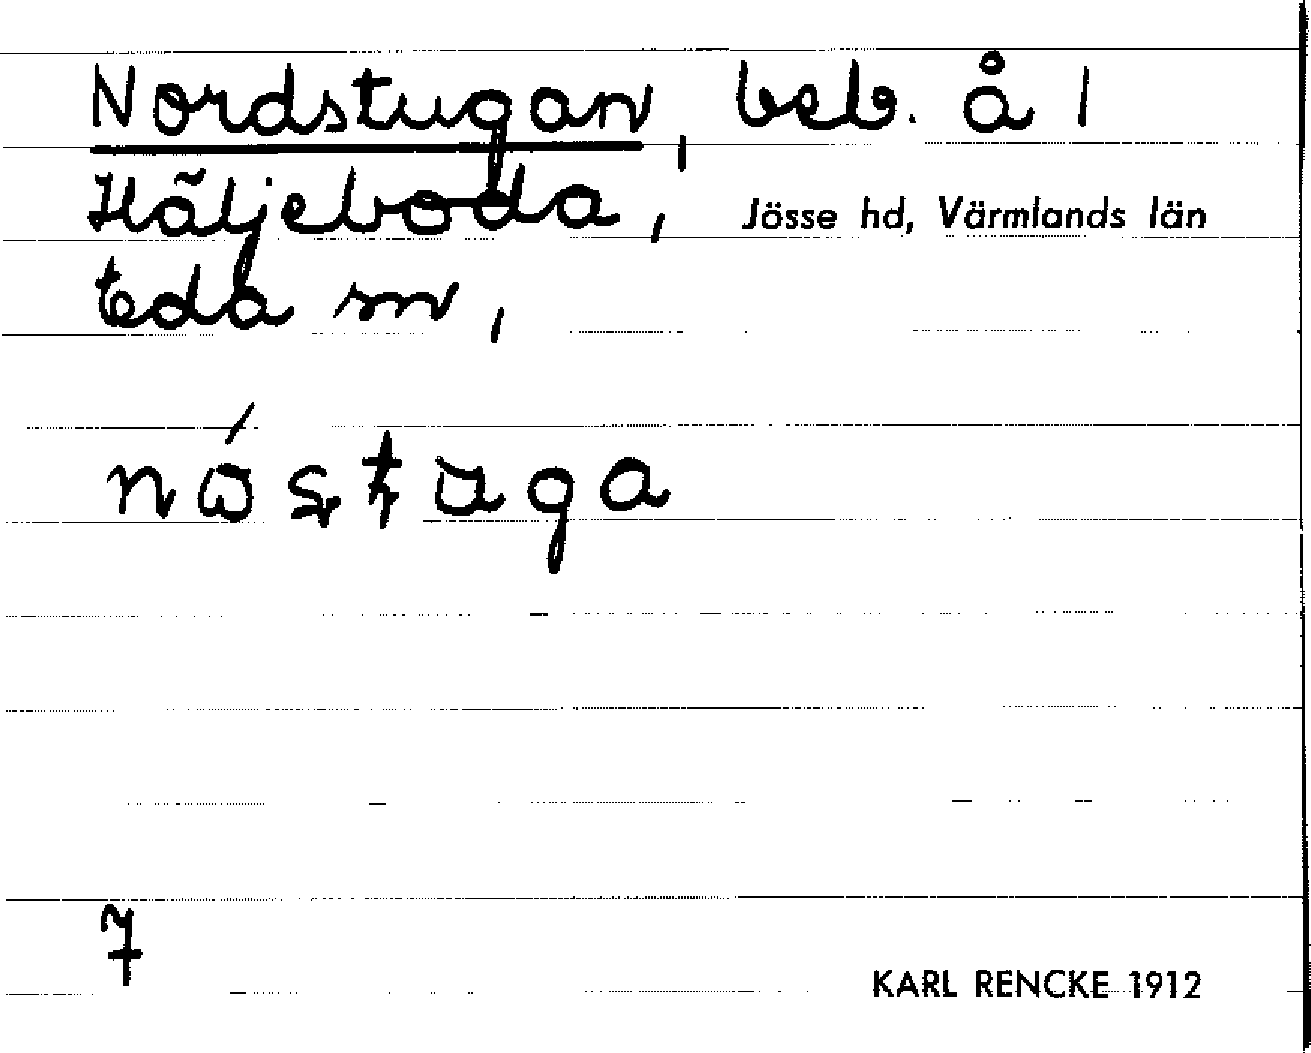 Nordstugan, beb. å 1
Häljeboda, Jösse hd, Värmlands län
Eda sn,
nɷ́sʈuga
7
KARL RENCKE 1912